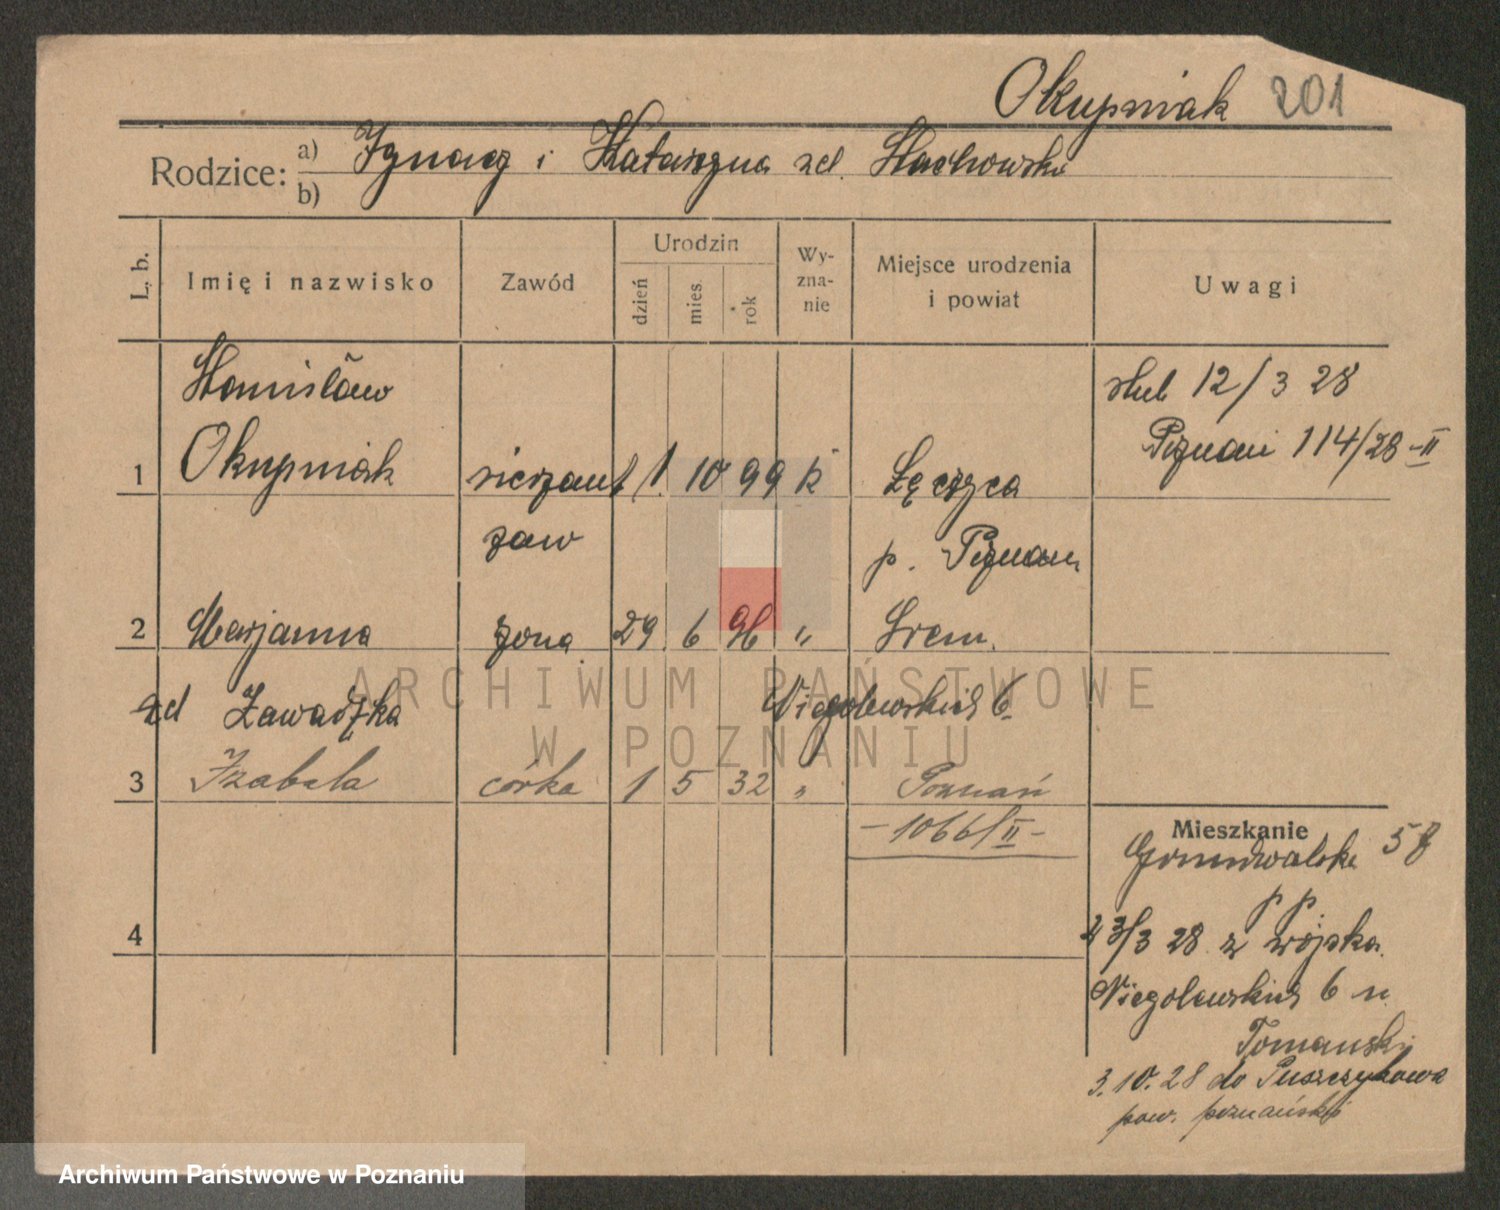 Okupniak 201
Rodzice: a) Ignacy i Katarzyna zd. Stachowska
b)
L. b.
Imię i nazwisko
Zawód
Urodzin
dzień
mies.
rok
Wy-
zna-
nie
Miejsce urodzenia
i powiat
Uwagi
Stanisław
ślub 12/3 28
Poznań 114/28-II
1 Okupniak sierżant 1 10 99 k Łęczyca
zaw p. Poznań
2 Marjanna żona 29 6 96 " Śrem.
zd Zawadzka Niegolewskich 6
3 Izabela córka 1 5 32 " Poznań
-1066/II-
Mieszkanie
Grunwaldzka 58
p p.
4 23/3 28 z wojska
Niegolewskich 6 u
Tomanski
3.10.28 do Puszczykowa
pow. poznański
ARCHIWUM PAŃSTWOWE
W POZNANIU
Archiwum Państwowe w Poznaniu